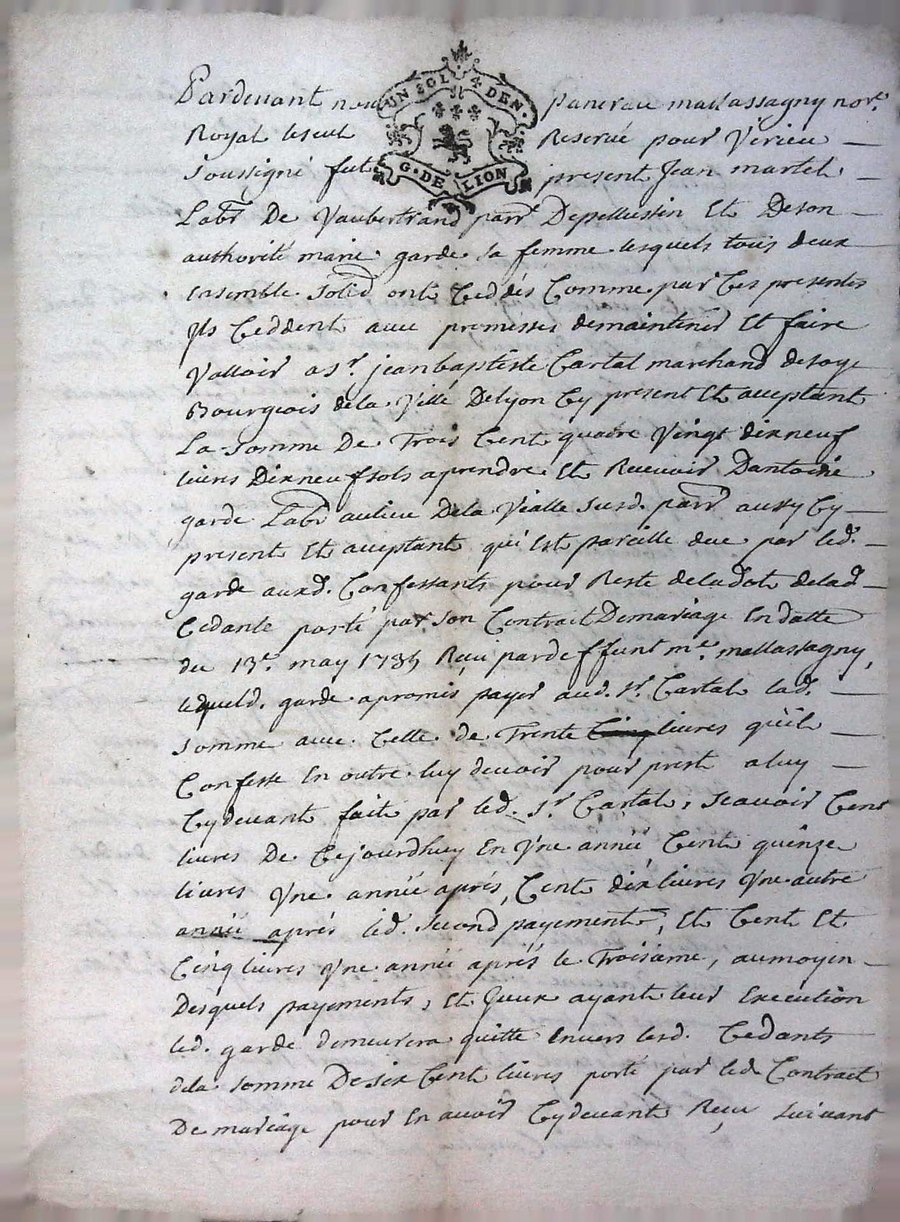 UN SOL 4 DEN.
G. DE LION
Pardevant nous pancrace mallassagny nore.
Royal Reservé pour Verieu
Soussigné fut present Jean martel
Labr De Vaubertrand parr Depellussin Et Deson
authorité marie garde sa femme lesquels tous deux
Ensemble Solid ont Ceddés Comme par Ces presentes
jls Ceddent avec promesses demaintenir Et faire
Valloir a Sr. jeanbaptiste Cartal marchand desoye
Bourgeois dela Ville Delyon Cy present Et acceptant
La Somme De Trois Cent quatre Vingt dixneuf
livres Dixneuf sols aprendre Et Recevoir Dantoine
garde Labr aulieu Dela Vialle Susd. parr aussy Cy
present Et acceptant qui Est pareille due par led.
garde auxd. Confessants pour Reste deladot delad
Cedante porté par son Contrait Demariage Endatte
du 13e. may 1735 Reçu par deffunt me. mallassagny,
lequeld. garde apromis payer aud. Sr. Cartal lad.
Somme avec Celle de Trente Cinq livres qu'il
Confesse En outre luy devoir pour prest aluy
Cydevant fait par led. Sr. Cartal, Scavoir Cent
livres De Cejourdhuy En Vne année Cent quinze
livres Vne année aprés, Cent dix livres Vne autre
année aprés led. Second payement, Et Cent Et
Cinq livres Vne année aprés le Troisiame, aumoyen
Desquels payements, Et Yceux ayant leur Execution
led. garde demeurera quitte Envers lesd. Cedants
dela Somme De Six Cent livres porté par led Contract
De mariage pour En avoir Cydevant Reçu, Suivant